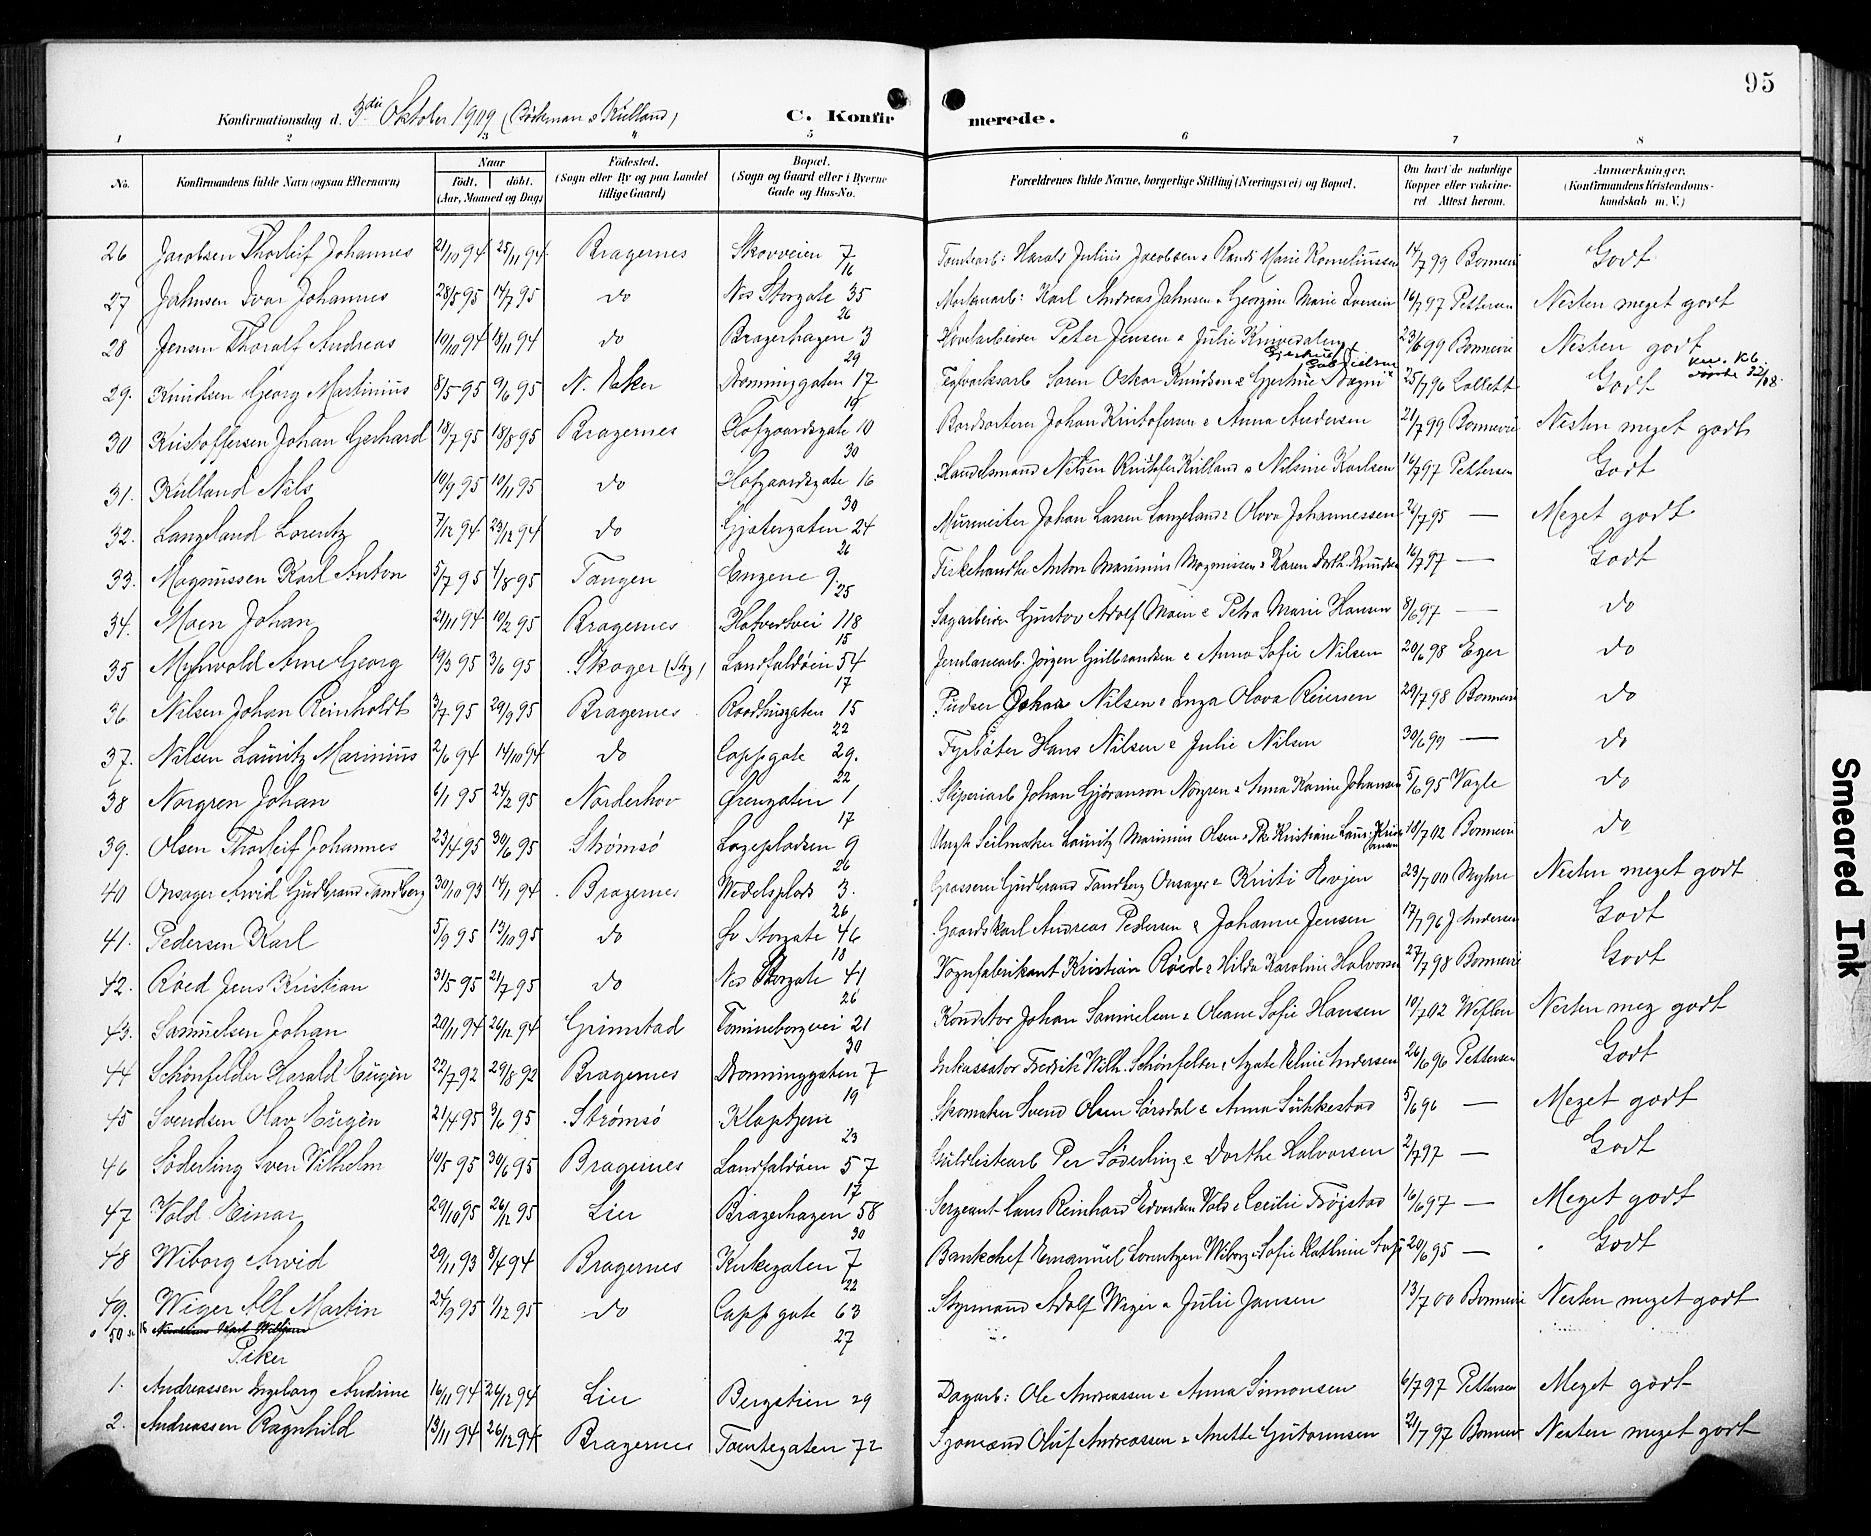 95
Konfirmationsdag d. 3die Oktober 1909 (Bøckman o Kielland)
C. Konfirmerede.
1 2 3 4 5 6 7 8
No. Konfirmandens fulde Navn (ogsaa Efternavn) Naar Født. døbt. (Aar, Maaned og Dag) Fødested. (Sogn eller By og paa Landet tillige Gaard) Bopæl. (Sogn og Gaard eller i Byerne Gade og Hus-No. Forældrenes fulde Navne, borgerlige Stilling (Næringsvei) og Bopæl. Om havt de naturlige Kopper eller vakcineret Attest herom. Anmærkninger. (Konfirmandens Kristendomskundskab m. V.)
26 Jacobsen Thorleif Johannes 21/10 94 25/11 94 Bragernes Skovveien 7 Tomtearb: Harald Julius Jacobsen o Randi Marie Korneliussen 14/7 99 Bonnevie Godt
27 Jahnsen Ivar Johannes 28/5 95 14/7 95 do Nes Storgate 35 Karl Andreas Jahnsen o Georgine Marie Iversen 16/7 97 Pettersen Nesten meget godt
28 Jensen Thoralf Andreas 10/10 94 18/11 94 do Bragerhagen 3 Høvlarbeider Peter Jensen o Julie 23/6 99 Bonnevie Nesten godt
29. Knudsen Georg Martinius 8/5 95 9/6 95 N. Eker Dronninggaten 17 Teglverksarb Søren Oskar Knudsen o Gjertine 25/7 96 Collett Godt
30 Kristoffersen Johan Gerhard 18/7 95 18/8 95 Bragernes Hofgaardsgate 10 Bordsorterer Johan Kristofersen o Anna Andersen 21/7 99 Bonnevie Nesten meget godt
31. Kielland Nils 10/9 95 10/11 95 do Hofgaardsgate 16 Handelsmand Nilsen Kielland o Nilsine Karlsen 16/7 97 Pettersen Godt
32. Langeland Lorentz 7/12 94 23/12 94 do Gjetergaten 24 Murmester Johan Larsen Langeland o Olava Johannessen 2/7 95 — Meget godt
33. Magnussen Karl Anton 5/7 95 4/8 95 Tangen Engene 9 Fiskehandler Anton Marinius Magnussen o Karen Dorth. Knudsen 16/7 97 — Godt
34. Moen Johan 21/11 94 10/2 95 Bragernes Hotvedtvei 118 Sagarbeider Gustav Adolf Moen o Petra Marie Hansen 8/6 97 — do
35 Myhrvold Arne Georg 19/3 95 3/6 95 Skoger Landfaldøien 54 Jernbanearb. Jørgen Gulbrandsen o Anna Sofie Nilsen 20/6 98 Eger do
36. Nilsen Johan Reinholdt 3/7 95 29/9 95 Bragernes Raadhusgaten 15 Pudser Oskar Nilsen o Inga Olava Reiersen 29/7 98 Bonnevie do
37. Nilsen Lauritz Marinius 2/6 94 14/10 94 do Cappgate 29. Fyrbøter Hans Nilsen o Julie Nilsen 30/6 99 — do
38 Norgren Johan 6/1 95 24/2 95 Norderhov Ørengaten 1 Sliperiarb Johan Gjøranson Norgren o Anna Karine Johansen 5/6 95 Vagle do
39. Olsen Thorleif Johannes 23/4 95 30/6 95 Strømsø Lageplodsen 9 Seilmaker Lauritz Marinius Olsen 10/7 02 Bonnevie do
40 Onsager Arvid Gudbrand Tandberg 30/10 93 14/1 94 Bragernes Wedelsplads 3. Grosserer Gudbrand Tandberg Onsager o Kristi Hovjen 23/7 00 Myhre Nesten meget godt
41. Pedersen Karl 5/9 95 13/10 95 do Øv Storgate 46 Gaardskarl Andreas Pedersen o Johanne Jensen 17/7 96 J Andersen Godt
42. Røed Jens Kristian 31/5 95 21/7 95 do Nes Storgate 41 Vognfabrikant Kristian Røed o Hilda Karoline Halvorsen 27/7 98 Bonnevie Godt
43. Samuelsen Johan 20/11 94 26/12 94 Grimstad Tomineborgvei 21 Konditor Johan Samuelsen o Oleane Sofie Hansen 10/7 02 Weflen Nesten meg godt
44 Schönfelder Harald Eugèn 22/7 92 29/8 92 Bragernes Dronninggaten 7 Inkassator Fredrik Wilh. Schönfelder o Agate Elvine Andersen 26/6 96 Pettersen Godt
45 Svendsen Olav Eugèn 21/4 95 3/6 95 Strømsø Kloptjern Skomaker Svend Olsen Sørsdal o Anna Sukkestad 5/6 96 — Meget godt
46 Söderling Sven Vilhelm 10/5 95 30/6 95 Bragernes Landfaldøien 57 Guldlistearb Per Söderling o Dorthe Halvorsen 2/7 97 — Godt
47 Vold Einar 29/10 95 26/12 95 Lier Bragerhagen 58 Sergeant Hans Reinhard Edvardsen Vold o Cecilie Trøgstad 16/6 97 — Meget godt
48 Wiborg Arvid 29/11 93 8/4 94 Bragernes Kirkegaten 7 Bankchef Emanuel Lorentzen Wiborg o Sofie Kathrine 20/6 95 — Godt
49. Wiger Alf Martin 24/9 95 1/12 95 do Cappgate 63 Styrmand Adolf Wiger o Julie Jansen 13/7 00 Bonnevie Nesten meget godt
50 Karl William
Piker
1. Andreassen Ingeborg Andrine 16/11 94 26/12 94 Lier Bergstien 29 Dagarb: Ole Andreassen o Anna Simonsen 6/7 97 Pettersen Meget godt
2. Andreassen Ragnhild 13/11 94 26/12 94 Bragernes Tomtegaten 72 Sjømand Oluf Andreassen o Anette Gutormsen 21/7 97 Bonnevie Nesten meget godt
Smeared Ink